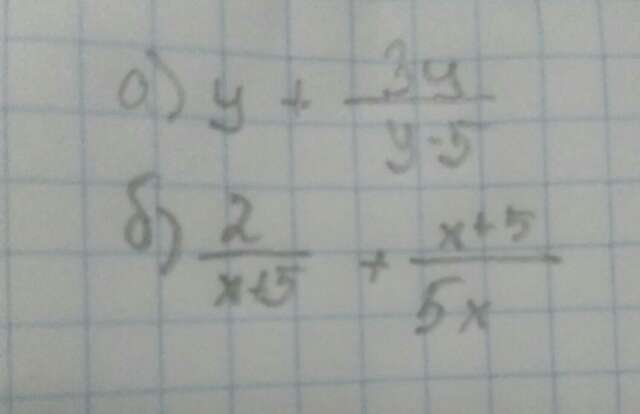 а) y + 3y / y-5
б) 2 / x+5 + x+5 / 5x